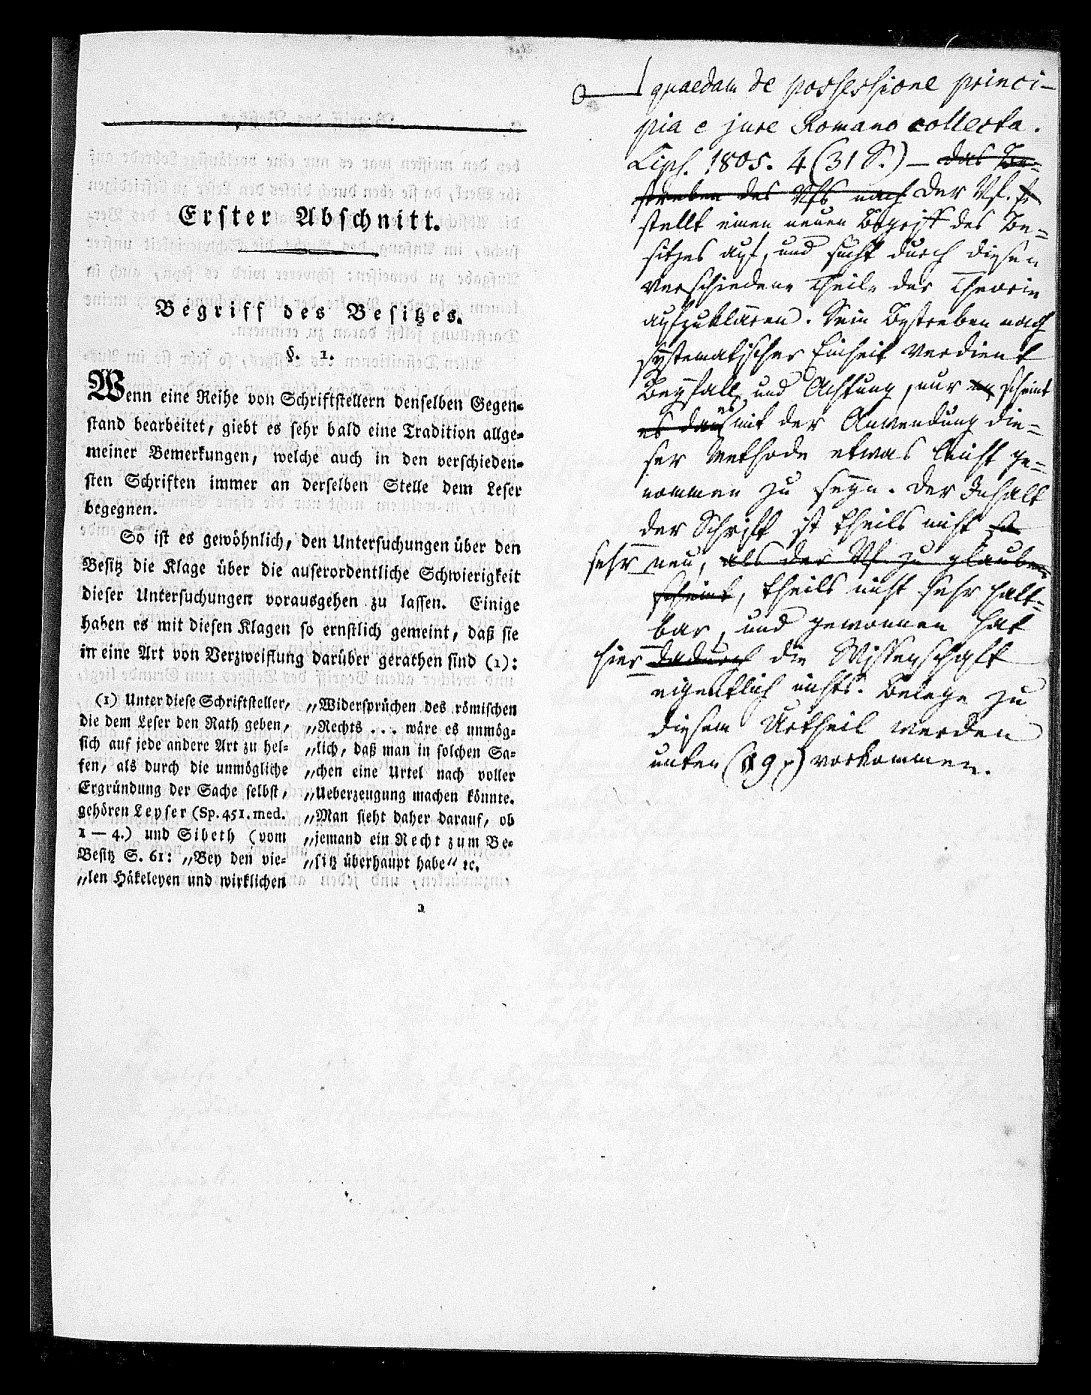 Erster Abschnitt.
Begriff des Besitzes.
§. 1.
Wenn eine Reihe von Schriftstellern denselben Gegen-
stand bearbeitet, giebt es sehr bald eine Tradition allge-
meiner Bemerkungen, welche auch in den verschieden-
sten Schriften immer an derselben Stelle dem Leser
begegnen.
So ist es gewöhnlich, den Untersuchungen über den
Besitz die Klage über die auserordentliche Schwierigkeit
dieser Untersuchungen vorausgehen zu lassen. Einige
haben es mit diesen Klagen so ernstlich gemeint, daß sie
in eine Art von Verzweiflung darüber gerathen sind (1):
(1) Unter diese Schriftsteller,
die dem Leser den Rath geben,
sich auf jede andere Art zu hel-
fen, als durch die unmögliche
Ergründung der Sache selbst,
gehören Leyser (Sp. 451. med.
1 — 4.) und Sibeth (vom
Besitz S. 61: „Bey den vie-
„len Häkeleyen und wirklichen
„Widersprüchen des römischen
„Rechts ... wäre es unmög-
„lich, daß man in solchen Sa-
„chen eine Urtel nach voller
„Ueberzeugung machen könnte.
„Man sieht daher darauf, ob
„jemand ein Recht zum Be-
„sitz überhaupt habe“ ꝛc.
quaedam de possessione princi-
pia e jure Romano collecta.
Lips. 1805. 4 (31 S.) — das Be-
streben des Vfs nach der Vf.
stellt einen neuen Begriff des Be-
sitzes auf, und sucht durch diesen
verschiedene Theile der Theorie
aufzuklären. Sein Bestreben nach
systematischer Einheit verdient
Beyfall und Achtung, nur scheint
es mit der Anwendung die-
ser Methode etwas leicht ge-
nommen zu seyn. Der Inhalt
der Schrift ist theils nicht so
sehr neu, als der Vf. zu glauben
scheint, theils nicht sehr halt-
bar, und gewonnen hat
hier dadurch die Wissenschaft
eigentlich nichts. Belege zu
diesem Urtheil werden
unten (§ 9) vorkommen.